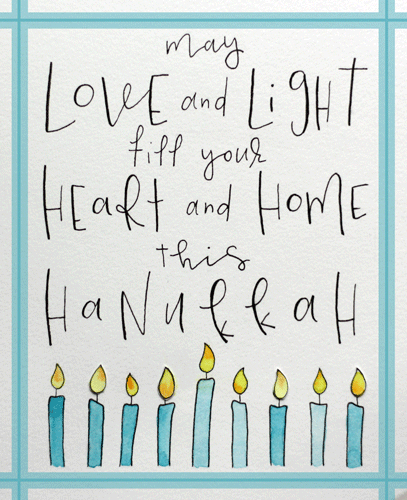 may
LOVE and LiGHT
fill your
HEaRt and HOME
this
HaNukkaH